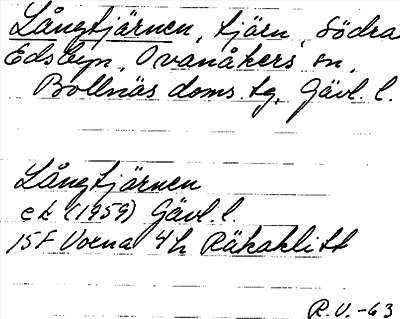 Långtjärnen, tjärn, södra
Edsbyn, Ovanåkers sn,
Bollnäs doms. tg, Gävl. l.
Långtjärnen
ek (1959) Gävl. l.
15F Voxna 4h Räkaklitt
R.V. -63